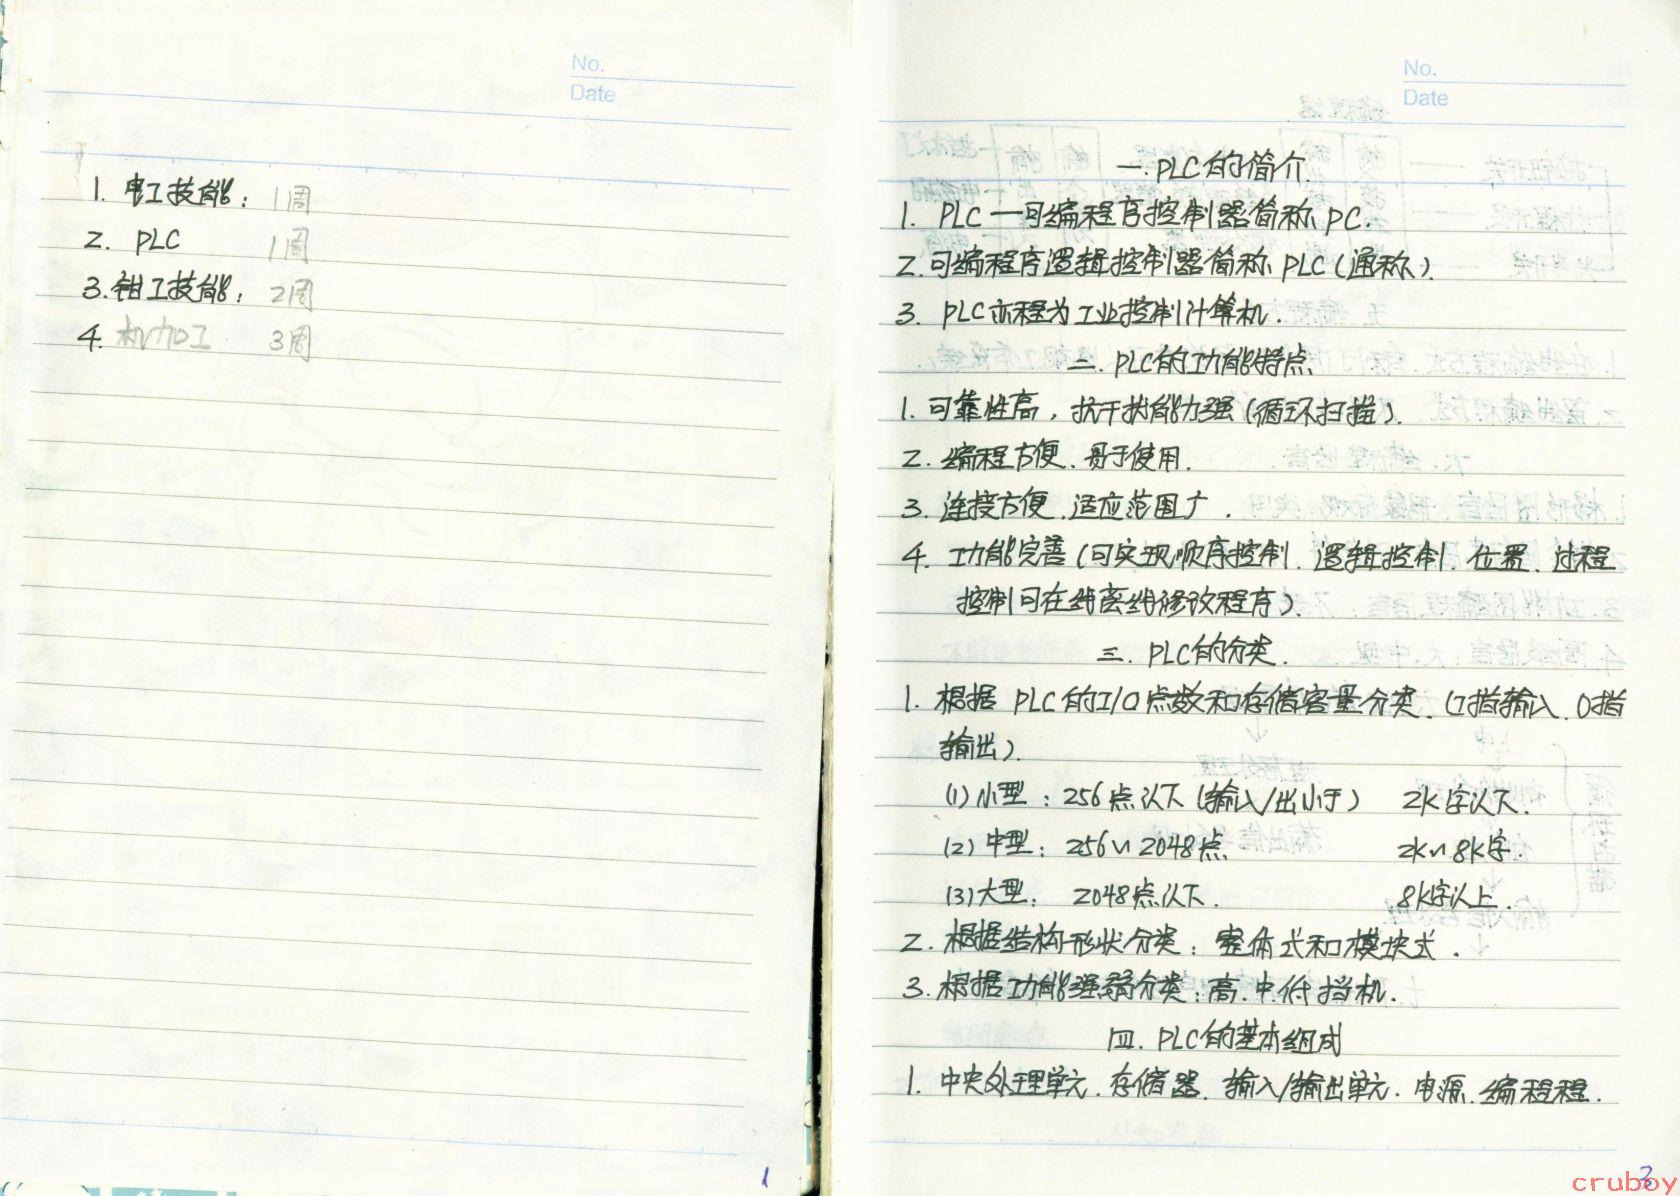 No.
Date
1. 电工技能： 1周
2. PLC 1周
3. 钳工技能： 2周
4. 机加工 3周
1
No.
Date
一. PLC的简介
1. PLC—可编程序控制器简称PC.
2. 可编程序逻辑控制器简称PLC(通称).
3. PLC亦程为工业控制计算机.
二. PLC的功能特点
1. 可靠性高，抗干扰能力强(循环扫描).
2. 编程方便、易于使用.
3. 连接方便、适应范围广.
4. 功能完善(可实现顺序控制、逻辑控制、位置、过程
控制可在线离线修改程序).
三. PLC的分类.
1. 根据PLC的I/O点数和存储容量分类. (I指输入、O指
输出).
(1)小型：256点以下(输入/出小于) 2K字以下.
(2)中型：256~2048点 2K~8K字.
(3)大型： 2048点以下. 8K字以上.
2. 根据结构形状分类：整体式和模块式.
3. 根据功能强弱分类：高.中.低挡机.
四. PLC的基本组成
1. 中央处理单元、存储器、输入/输出单元、电源、编程程.
3
cruboy